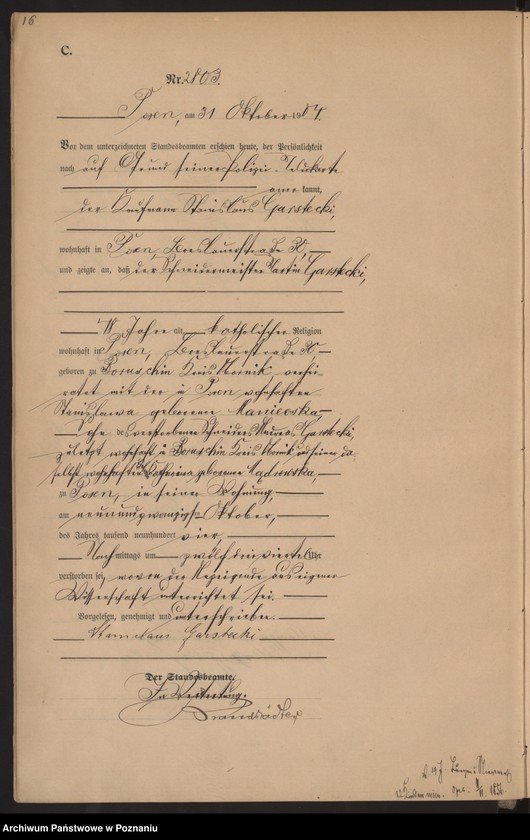 16
C.
Nr. 2803.
Posen, am 31 Oktober 1904.
Vor dem unterzeichneten Standesbeamten erschien heute, der Persönlichkeit
nach auf Grund seiner Polizei
kannt,
der Kaufmann Stanislaus Garstecki,
wohnhaft in Posen, Breslauerstraße 30,
und zeigte an, daß der Schneidermeister Martin Garstecki,
Jahre alt, katholischer Religion
wohnhaft in Posen, Breslauerstraße 30,
geboren zu Boruschin Kreis Obornik, verhei-
ratet mit der in Posen wohnhaften
Stanislawa geborenen
Sohn des verstorbenen Schneiders Garstecki,
zuletzt wohnhaft in Boruschin Kreis Obornik und seiner da-
selbst wohnhaften Catharina geborene
zu Posen, in seiner Wohnung
am neunundzwanzigsten Oktober,
des Jahres tausend neunhundert vier,
Nachmittags um zwölf dreiviertel Uhr
verstorben sei, wovon der Anzeigende aus eigener
Wissenschaft unterrichtet sei.
Vorgelesen, genehmigt und unterschrieben
Stanislaus Garstecki
Der Standesbeamte.
In Vertretung.
Brandstädter
1856.
Archiwum Państwowe w Poznaniu